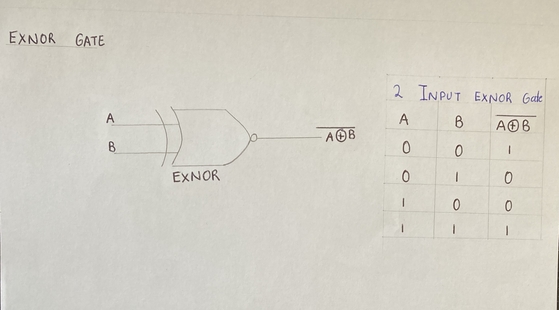 EXNOR GATE
A
B
A⊕B̅
EXNOR
2 INPUT EXNOR Gate
A B A⊕B̅
0 0 1
0 1 0
1 0 0
1 1 1